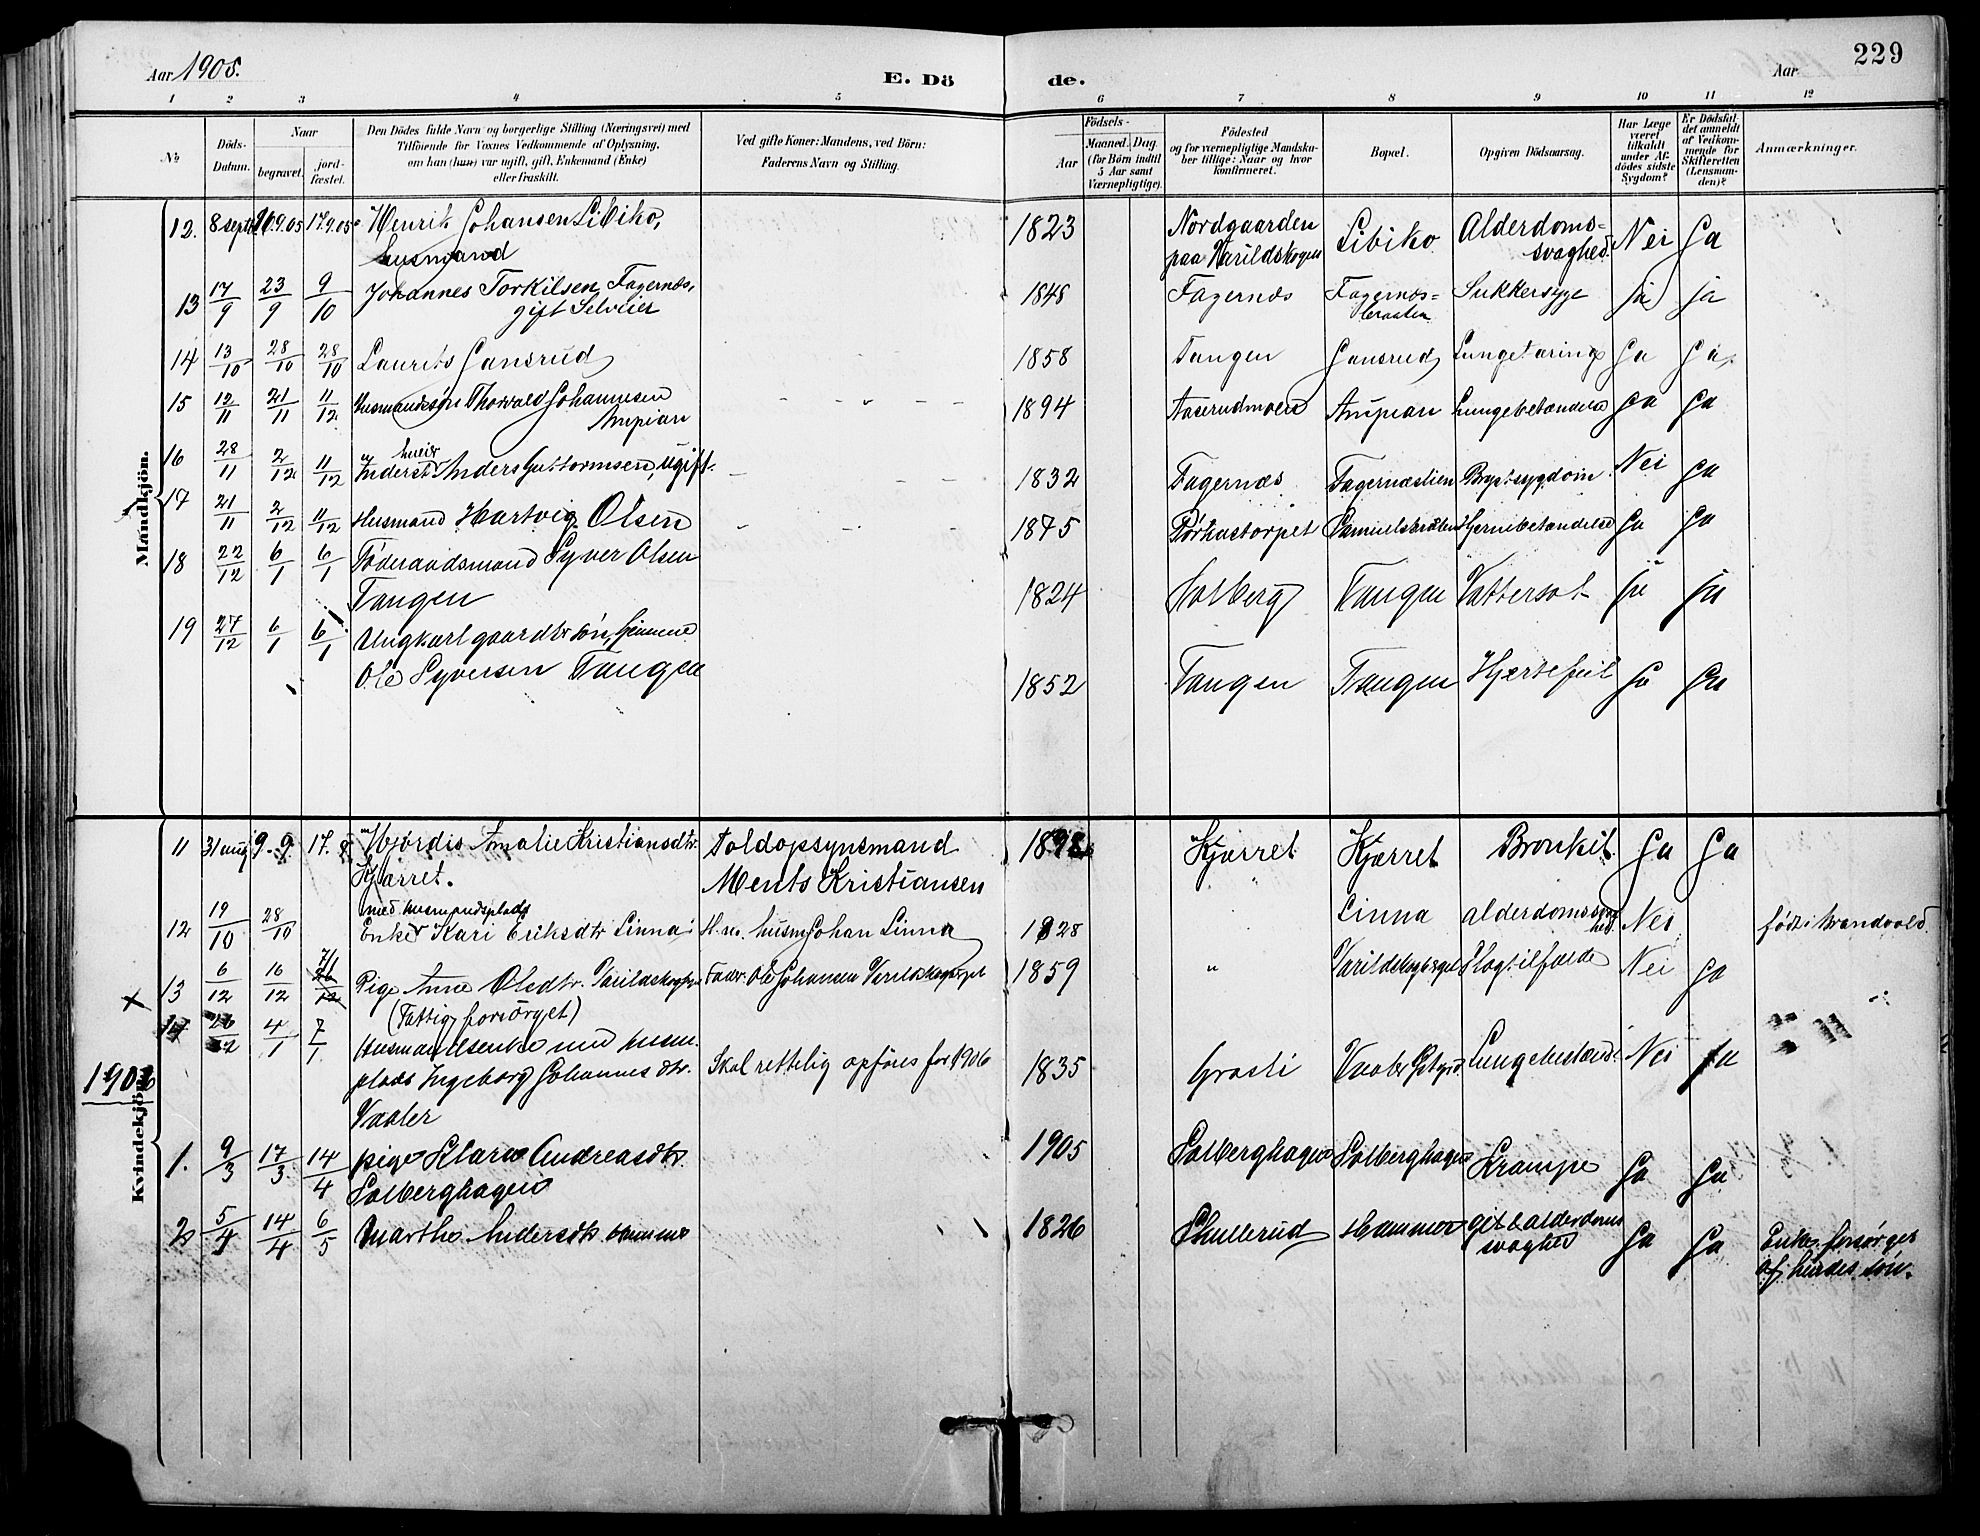 Aar 1905.
E. Dö
de.
Aar
229
1 2 3 4 5 6 7 8 9 10 11 12
No
Döds-
Datum.
Naar
begravet.
jord-
fæstet.
Den Dödes fulde Navn og borgerlige Stilling (Næringsvei) med
Tilföiende for Voxnes Vedkommende af Oplysning,
om han (hun) var ugift, gift, Enkemand (Enke)
eller fraskilt.
Ved gifte Koner: Mandens, ved Börn:
Faderens Navn og Stilling.
Födsels-
Aar
Maaned. Dag.
(for Börn indtil
5 Aar samt
Værnepligtige).
Födested
og for værnepligtige Mandska-
ber tillige: Naar og hvor
konfirmeret.
Bopæl.
Opgiven Dödsaarsag.
Har Læge
været
tilkaldt
under Af-
dödes sidste
Sygdom?
Er Dödsfal-
det anmeldt
af Vedkom-
mende for
Skifteretten
(Lensman-
den)?
Anmærkninger.
Mandkjön.
12. 8 sept 17.9.05 Henrik Johansen Libiko, 1823 Nordgaarden Libiko Alderdoms- Nei Ja
Husmand paa Varildskogen svaghed.
13 17/9 23/9 9/10 Johannes Torkilsen Fagernæs, 1848 Fagernæs Fagernæs= Sukkersyge ja ja
gift Selveier
14 13/10 28/10 28/10 Laurits Jansrud 1858 Tangen Jansrud Lungetæring Ja Ja
15 12/11 21/11 11/12 Husmandssøn Thorvald Johannesen 1894 Aaserudmoen Ampian Lungebetændelse Ja Ja
Ampian
16 28/11 2/12 11/12 Inderst Anders Guttormsen, ugift. 1832 Fagernæs Fagernæslien Brystsygdom Nei Ja
17 21/11 2/12 11/12 Husmand Hartvig Olsen 1875 Hjernebetændelse Ja Ja
18 22/12 6/1 6/1 Föderaadsmand Syver Olsen
Tangen 1824 Holberg Tangen Vattersot ja ja
19 27/12 6/1 6/1 Ungkarl gaardbr søn, hjemme
Ole Syversen Tangen 1852 Tangen Tangen Hjertefeil Ja Ja
Kvindekjön.
11 31 aug 9.9. 17. Hjørdis Amalie Kristiansdtr. Toldopsynsmand Kjærret Kjærret Bronkit. Ja Ja
Kjærret. Ments Kristiansen
med husmandsplads
12 19/10 28/10 Enke Kari Eriksdtr Linna H.m. husm Johan Linna 1828 " Linna alderdomssvag- Nei født i Brandvold
hed.
13 6/12 16/12 7/1 Pige Anne Olsdtr. Fader. Ole Johansen 1859 " Slagtilfælde Nei Ja
(Fattig forsörget)
26/12 4/1 7/1 Husmandsenke med husm.
plads Ingeborg Johannesdtr. Skal rettelig opføres for 1906 1835 Grasli Nei ja
Vaaler
1906
1. 9/3 17/3 14/4 pige Klara Andreasdtr. 1905 Solberghagen Solberghagen Krampe Ja Ja
Solberghagen
2 5/4 14/4 6/5 Marthe Andersdtr Hammer 1826 Skullerud Hammer gigt & alderdoms Ja Ja Enke, forsørges
svaghed af hendes søn.